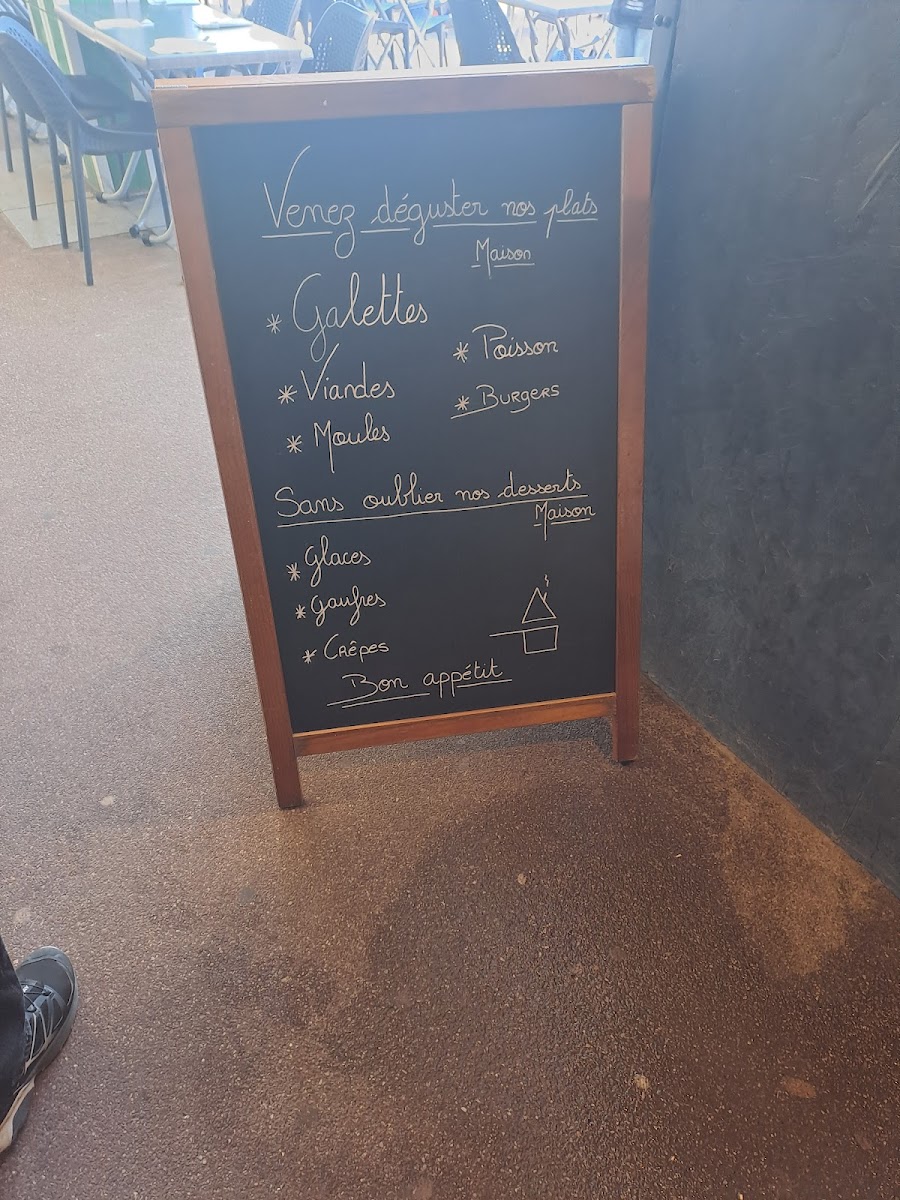 Venez déguster nos plats
Maison
* Galettes
* Viandes
* Moules
* Poisson
* Burgers
Sans oublier nos desserts
Maison
* Glaces
* Gaufres
* Crêpes
Bon appétit